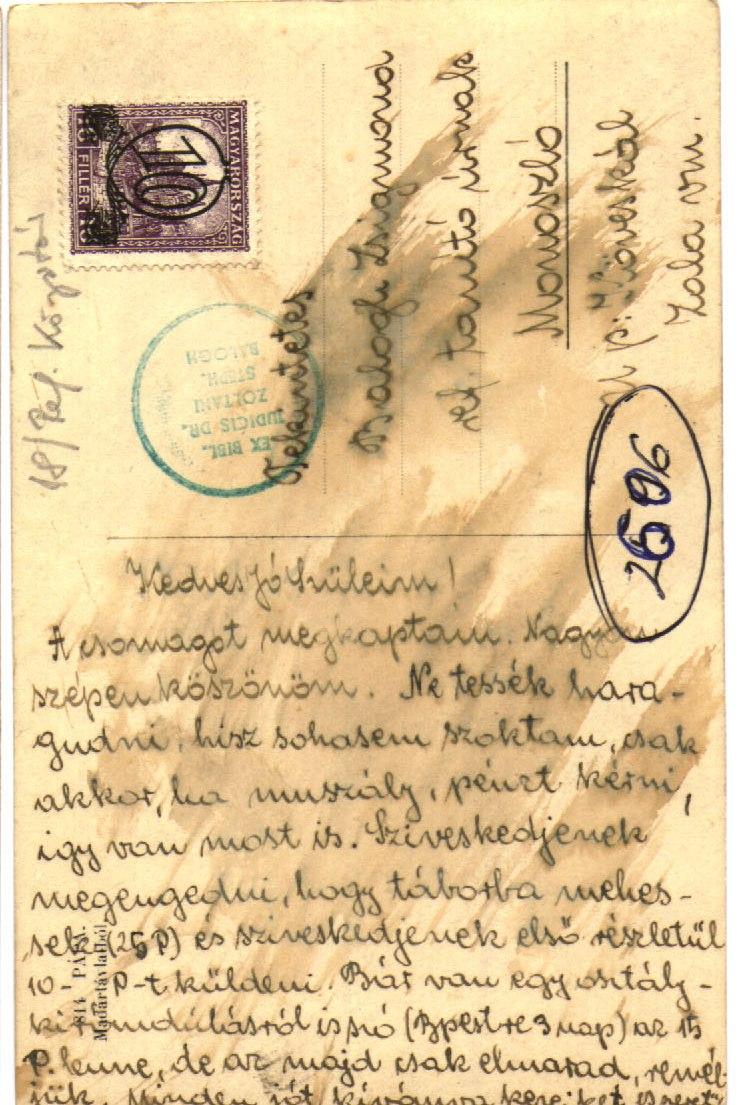 MAGYARORSZÁG
10
FILLÉR
18/Ref. Közptár
EX BIBL.
JUDICIS DR.
ZOLTANI
STEPH.
BALOGH
Tekintetes
Balogh Zsigmond
ref. tanító úrnak
Monoszló
u. p. Köveskál
Zala vm.
2696
Kedves Jó Szüleim!
A csomagot megkaptam. Nagyon
szépen köszönöm. Ne tessék hara-
gudni, hisz sohasem szoktam, csak
akkor, ha muszály, pénzt kérni,
így van most is. Sziveskedjenek
megengedni, hogy táborba mehes-
sek (25 P) és sziveskedjenek első részletül
10- P-t küldeni. Bár van egy osztály-
kirándulásról is szó (Bpestre 3 nap) az 15
P. lenne, de az majd csak elmarad, remél-
jük. Minden jót kívánva
PÁPA.
Madártávlatból